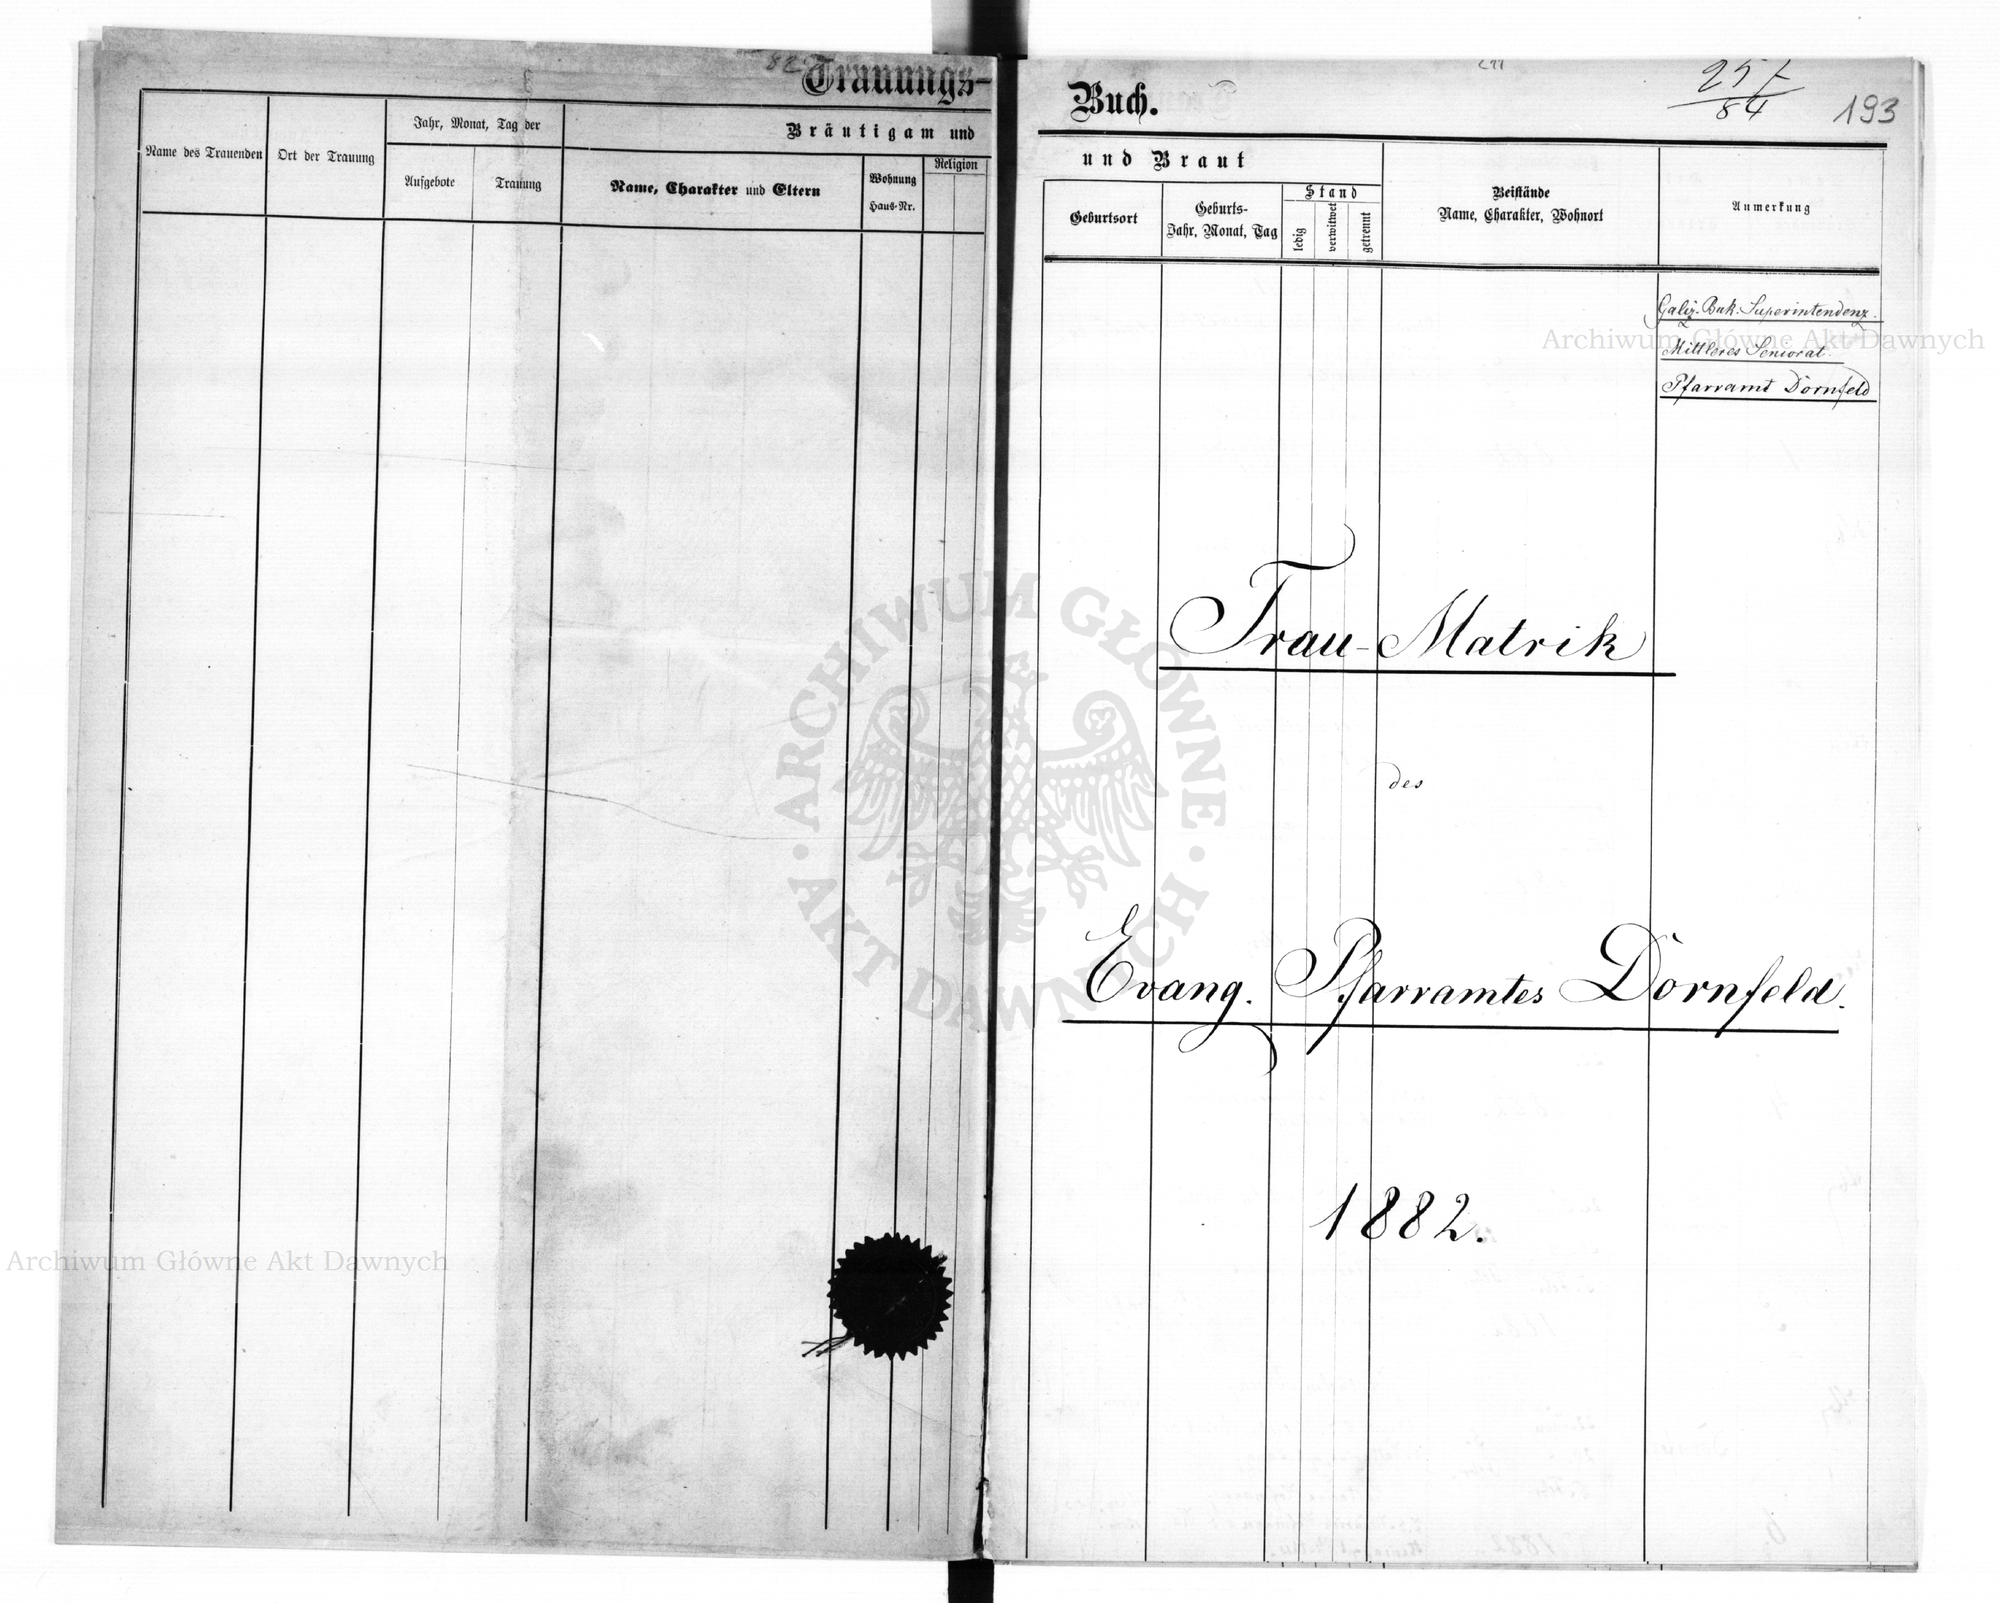 Trauungs-
Jahr, Monat, Tag der
Bräutigam und
Name des Trauenden
Ort der Trauung
Aufgebote
Trauung
Name, Charakter und Eltern
Wohnung
Haus-Nr.
Religion
Buch.
257
84
193
und Braut
Geburtsort
Geburts-
Jahr, Monat, Tag
Stand
ledig
verwitwet
getrennt
Beistände
Name, Charakter, Wohnort
Anmerkung
Galiz. Buk. Superintendenz.
Mittleres Seniorat.
Pfarramt Dornfeld
Trau-Matrik
des
Evang. Pfarramtes Dornfeld.
1882.
Archiwum Główne Akt Dawnych
Archiwum Główne Akt Dawnych
ARCHIWUM GŁÓWNE · AKT DAWNYCH ·